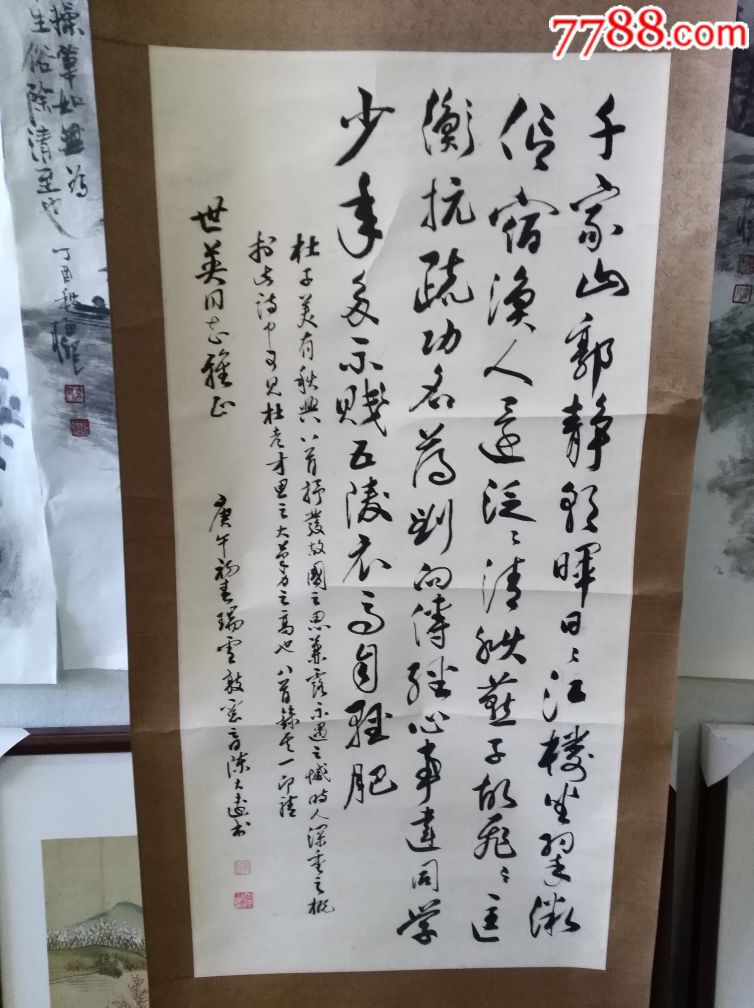 7788.com
千家山郭静朝晖日々江楼坐翠微
信宿渔人还泛々清秋燕子故飞々匡
衡抗疏功名薄刘向传经心事违同学
少年多不贱五陵衣马自轻肥
杜子美有秋兴八首抒发故国之思兼露不遇之憾时人深重之概
于诗中可见杜老才思之大笔力之高也八首录其一即请
世英同志雅正
庚午初春瑞雪敲窗
操笔如无为
生俗除清至也
丁酉秋